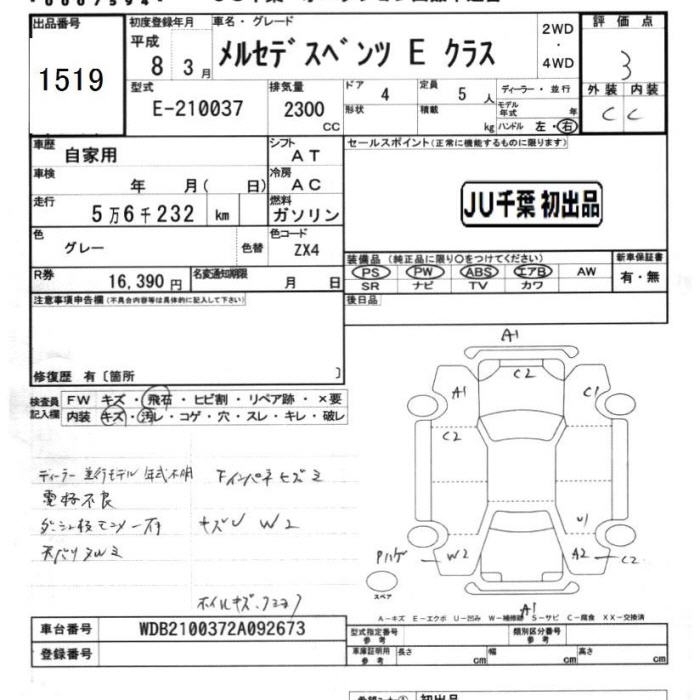 出品番号
1519
初度登録年月
平成
8 3月
車名・グレード
メルセデスベンツ E クラス
2WD
・
4WD
評価点
3
外装 内装
C C
型式
E-210037
排気量
2300
CC
ドア
4
定員
5 人
ディーラー・並行
形状
積載
kg
モデル年式
年
ハンドル 左・右
車歴
自家用
シフト
AT
セールスポイント(正常に機能するものに限ります)
車検
年 月( 日)
冷房
AC
JU千葉 初出品
走行
5万6千232 km
燃料
ガソリン
色
グレー
色替
色コード
ZX4
装備品(純正品に限り○をつけてください)
新車保証書
PS PW ABS エアB AW
有・無
SR ナビ TV カワ
R券
16,390円
名変通知期限
月 日
後日品
注意事項申告欄(不具合内容等は具体的に記入して下さい)
修復歴 有〔箇所 〕
検査員
記入欄
FW キズ・飛石・ヒビ割・リペア跡・×要
内装 キズ・汚レ・コゲ・穴・スレ・キレ・破レ
A1
C2
A1
C1
C2
U1
W2
A2
C2
Pハゲ
スペア
A1
ディーラー 並行モデル 年式不明
下インパネ ヒズミ
キズU W2
天バリ タルミ
A−キズ E−エクボ U−凹み W−補修跡 S−サビ C−腐食 XX−交換済
車台番号
WDB2100372A092673
登録番号
型式指定番号
参考
類別区分番号
参考
車庫証明用
参考
長さ cm
幅 cm
高さ cm
初出品